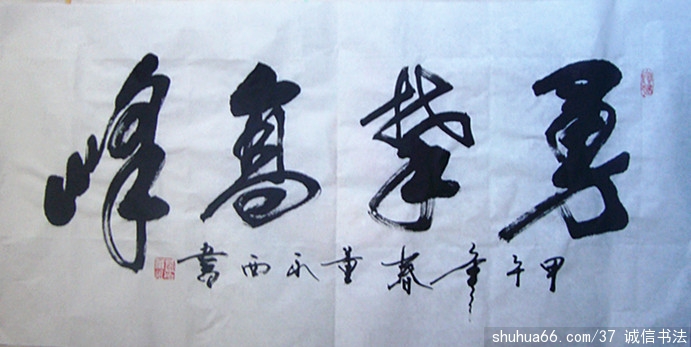 勇攀高峰
甲午年春董永西書
shuhua66.com/37 诚信书法